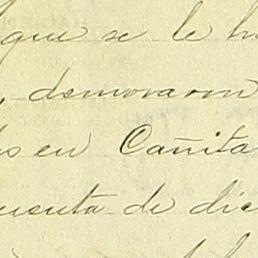 que se le h
demoraron
s en Cañita
cuenta de dic